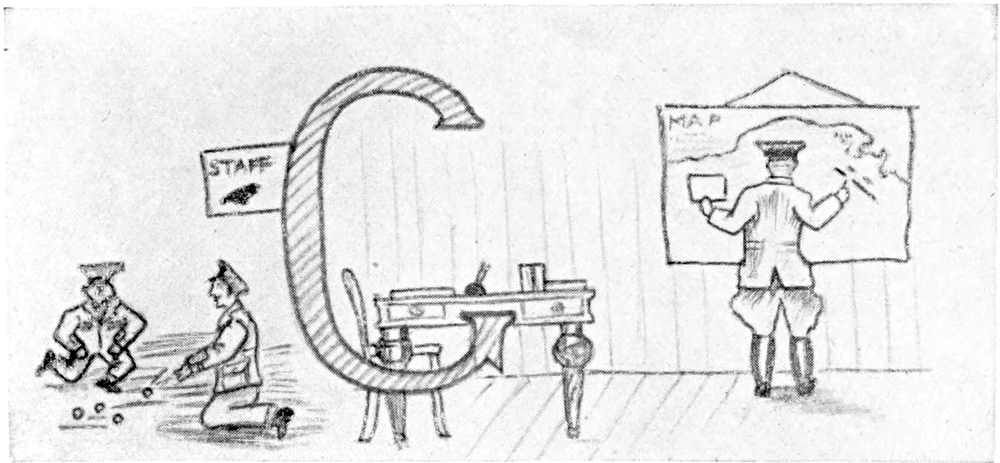 STAFF
G
MAP